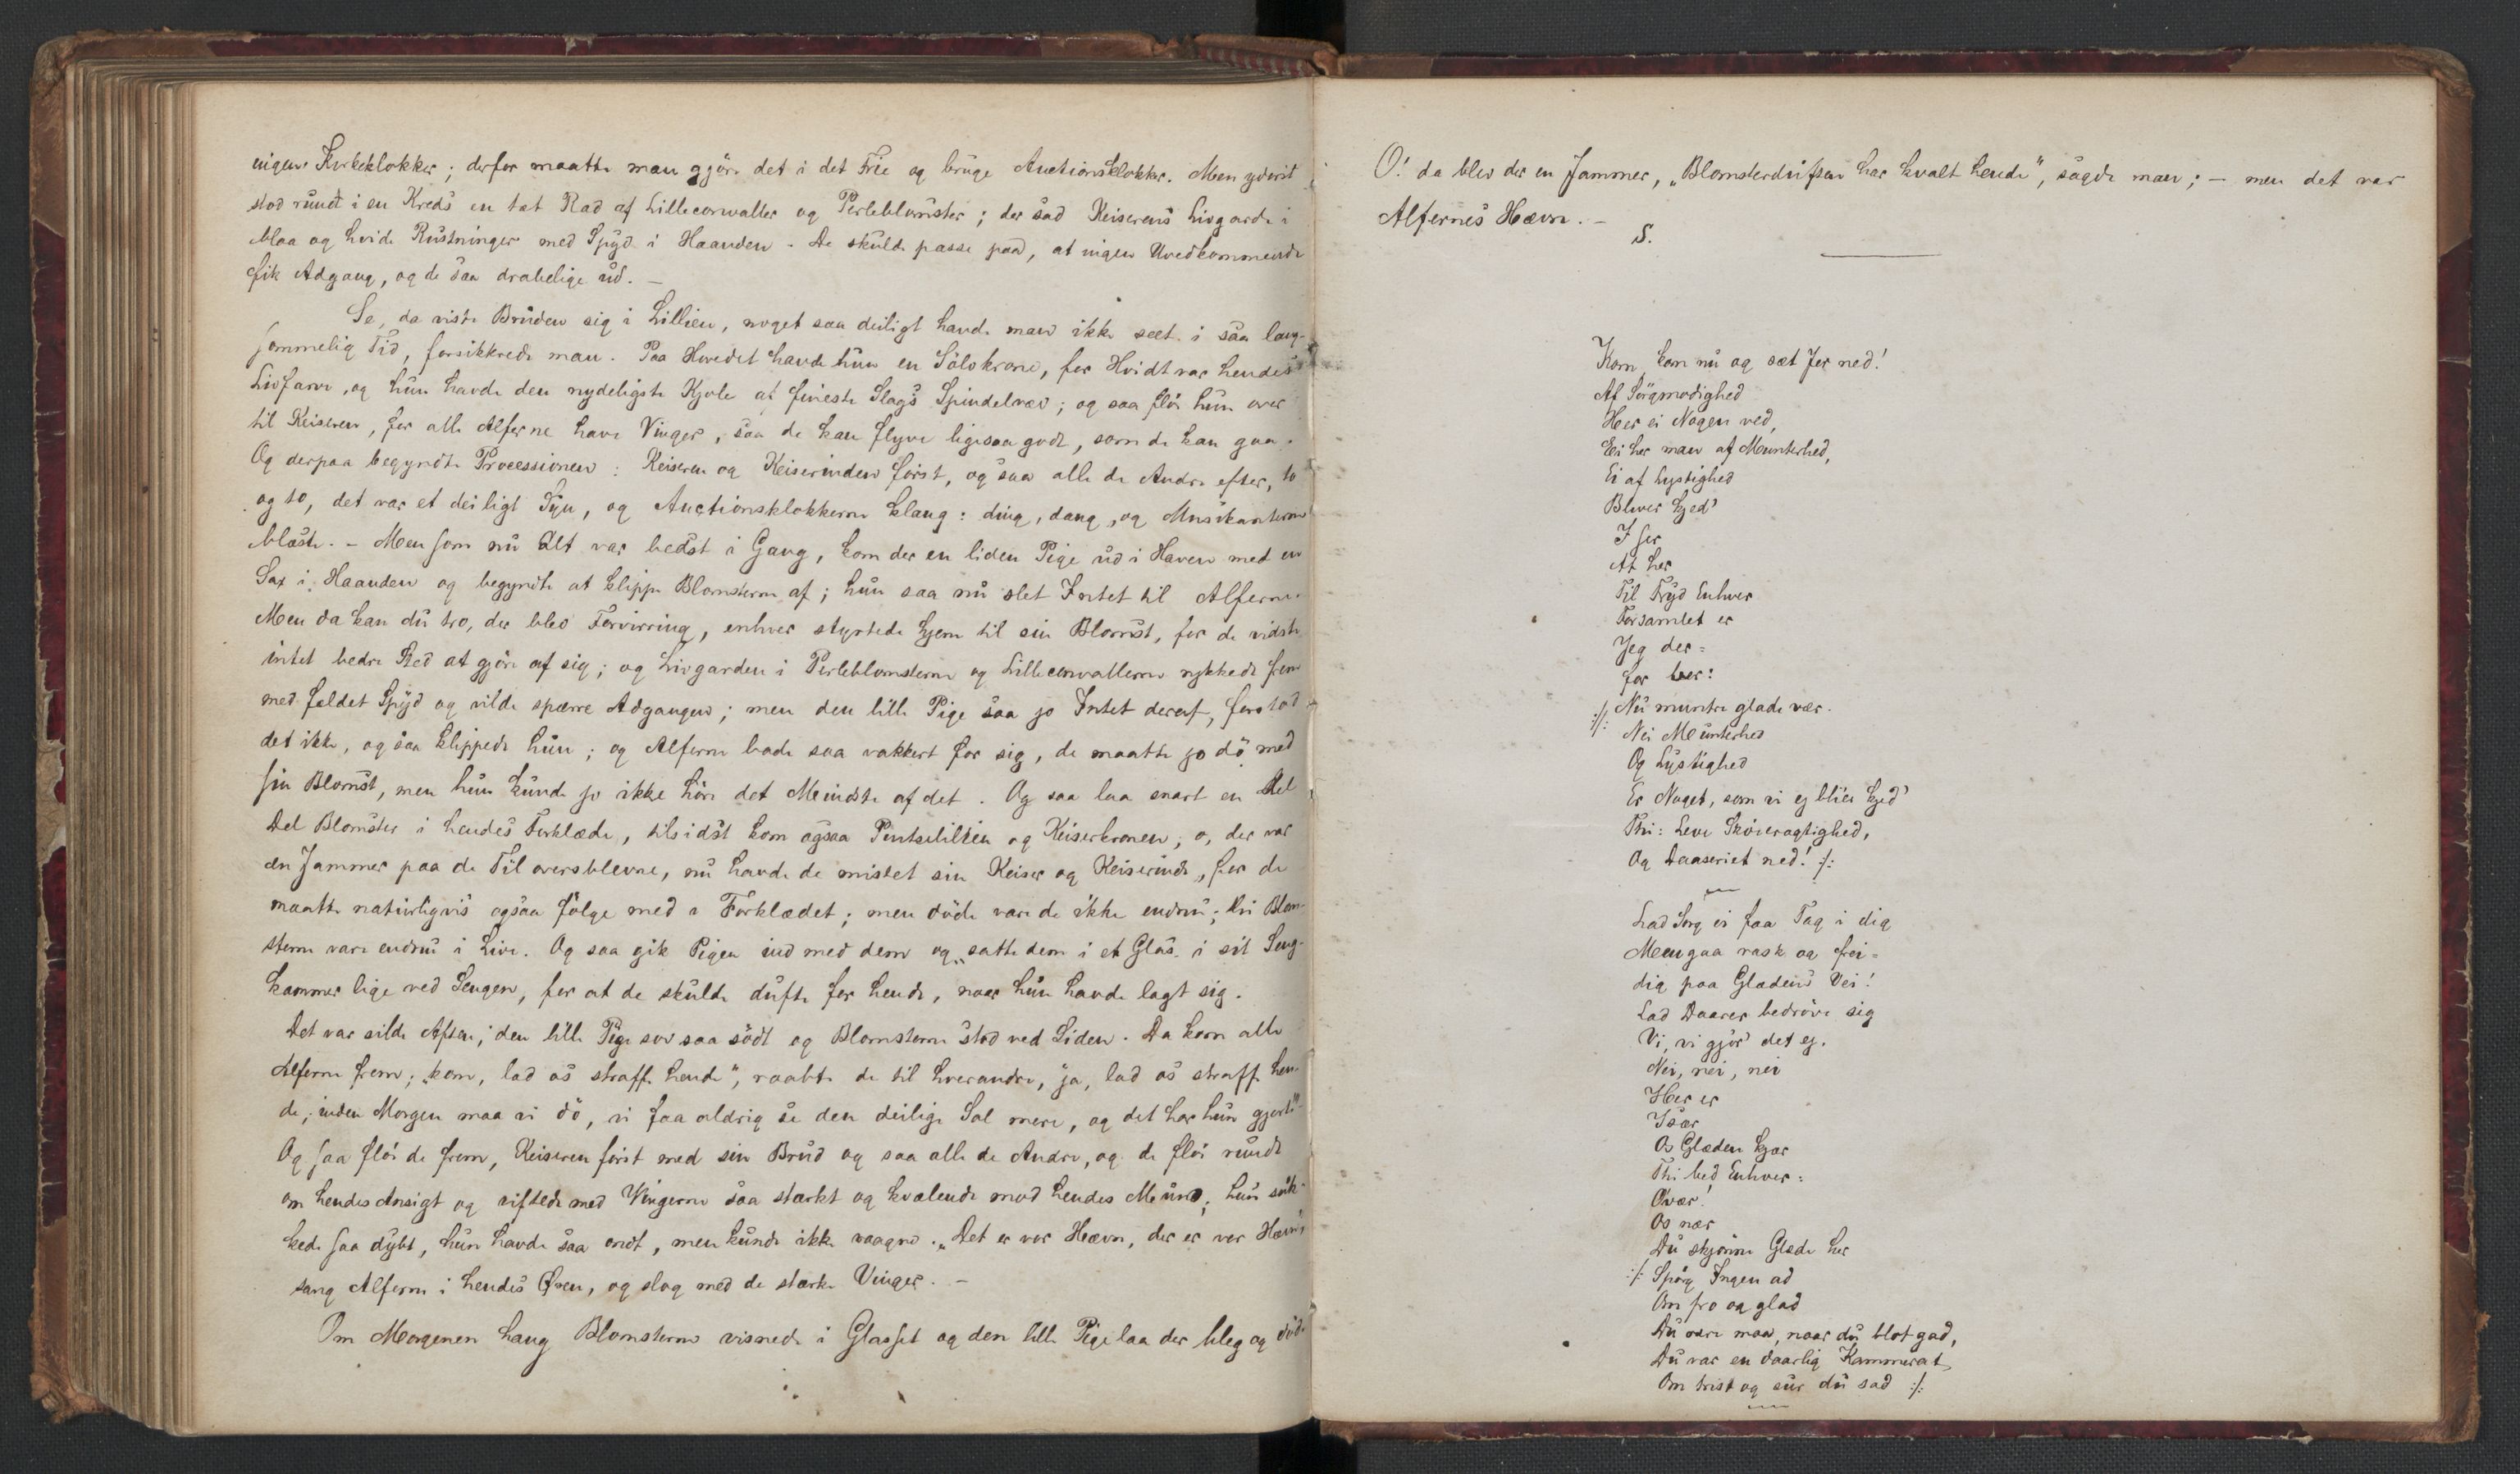 ingen Kirkeklokker; derfor maatte man gjöre det i det Frie og bruge Auctionsklokker. Men yderst
stod rundt i en Kreds en tæt Rad af Lilleconvaller og Perleblomster; der sad Keiserens Livgarde i
blaa og hvide Rustninger med Spyd i Haanden. De skulde passe paa, at ingen Uvedkommende
fik Adgang, og de saa drabelige ud. –
Se, da viste Bruden sig i Lillien, noget saa deiligt havde man ikke seet i saa lang-
sommelig Tid, forsikkrede man. Paa Hovedet havde hun en Sölvkrone, for Hvidt var hendes
Livfarve, og hun havde den nydeligste Kjole af fineste Slags Spindelvæv; og saa flöi hun over
til Keiseren, for alle Alferne have Vinger, saa de kan flyve ligesaa godt, som de kan gaa.
Og derpaa begyndte Processionen: Keiseren og Keiserinden först, og saa alle de Andre efter, to
og to, det var et deiligt Syn, og Auctionsklokkerne klang: ding, dang, og Musikanterne
blæste. – Men som nu Alt var bedst i Gang, kom der en liden Pige ud i Haven med en
Sax i Haanden og begyndte at klippe Blomsterne af; hun saa nu slet Intet til Alferne.
Men da kan du tro, der blev Forvirring, enhver styrtede hjem til sin Blomst, for de vidste
intet bedre Sted at gjöre af sig; og Livgarden i Perleblomsterne og Lilleconvallerne rykkede frem
med fældet Spyd og vilde spærre Adgangen; men den lille Pige saa jo Intet deraf, forstod
det ikke, og saa klippede hun; og Alferne bade saa vakkert for sig, de maatte jo dö med
sin Blomst, men hun kunde jo ikke höre det Mindste af det. Og saa laa snart en Del
Del Blomster i hendes Forklæde, tilsidst kom ogsaa Pintselilien og Keiserkronen, o, der var
en Jammer paa de Tiloversblevne, nu havde de mistet sin Keiser og Keiserinde, for de
maatte naturligvis ogsaa fölge med i Forklædet; men döde vare de ikke endnu; thi Blom-
sterne vare endnu i Live. Og saa gik Pigen ind med dem og satte dem i et Glas i sit Seng-
kammer lige ved Sengen, for at de skulde dufte for hende, naar hun havde lagt sig.
Det var silde Aften, den lille Pige sov saa södt og Blomsterne stod ved Siden. Da kom alle
Alferne frem; „kom, lad os straffe hende“, raabte de til hverandre, „ja, lad os straffe hen-
de, inden Morgen maa vi dö, vi faa aldrig se den deilige Sol mere, og det har hun gjort“
Og saa flöi de frem, Keiseren först med sin Brud og saa alle de Andre, og de flöi rundt
om hendes Ansigt og viftede med Vingerne saa stærkt og kvælende mod hendes Mund; hun suk-
kede saa dybt, hun havde saa ondt, men kunde ikke vaagne. „Det er vor Hævn, der er vor Hævn“
sang Alferne i hendes Ören, og slog med de stærke Vinger. –
Om Morgenen hang Blomsterne visnede i Glasset og den lille Pige laa der bleg og död.
O! da blev der en Jammer, „Blomsterduften har kvalt hende“, sagde man; – men det var
Alfernes Hævn. –
S.
Kom, kom nu og sæt Jer ned!
Af Sörgmodighed
Her ei Nogen ved,
Ei her man af Munterhed,
Ei af Lystighed
Bliver kjed'
I ser
At her
Til Fryd Enhver
Forsamlet er
Jeg der-
for ber:
:/: Nu muntre glade vær.
Nei Munterhed
Og Lystighed
Er Noget, som vi ej blier kjed'
Thi: Leve Sköieragtighed,
Og Daaseriet ned! :/:
Lad Sorg ei faa Tag i dig
Men gaa rask og frei-
dig paa Glædens Vei!
Lad Daarer bedröve sig
Vi, vi gjör det ej.
Nei, nei, nei
Her er
Især
Os Glæden kjær
Thi bed Enhver:
O vær!
Os nær
Du skjönne Glæde her
:/: Spörg Ingen ad
Om fro og glad
Du være maa, naar du blot gad,
Du var en daarlig Kammerat
Om trist og sur du sad :/: